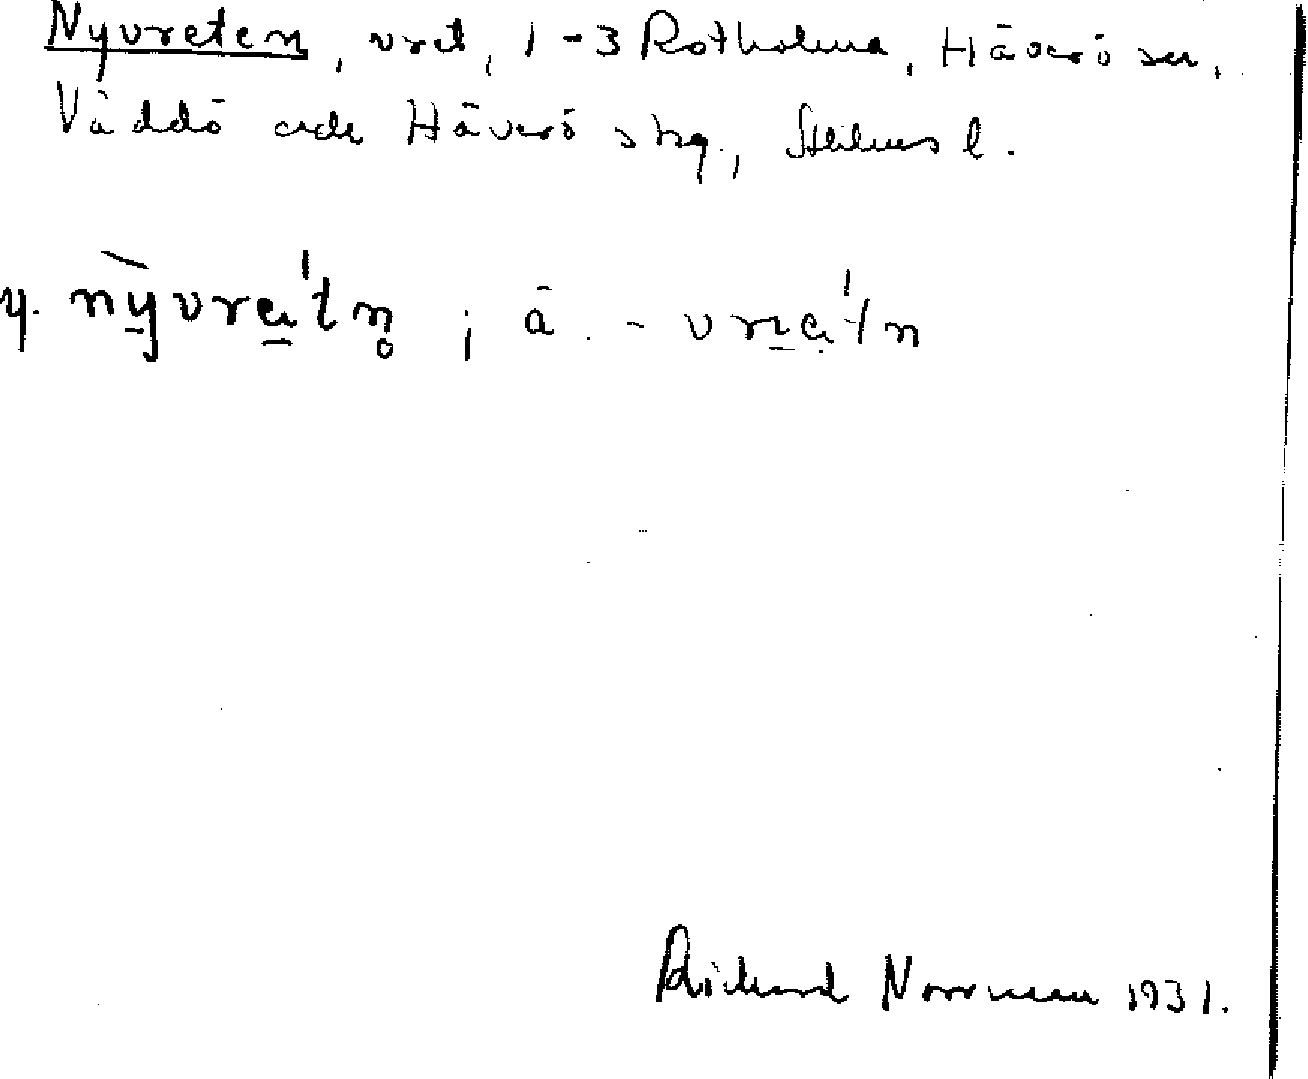 Nyvreten, vret, 1-3 Rotholma, Häverö sn,
Väddö och Häverö skg., Sthlms l.
y. nỳvret'n̥ ; ä. -vret'n
Richard Norrman 1931.